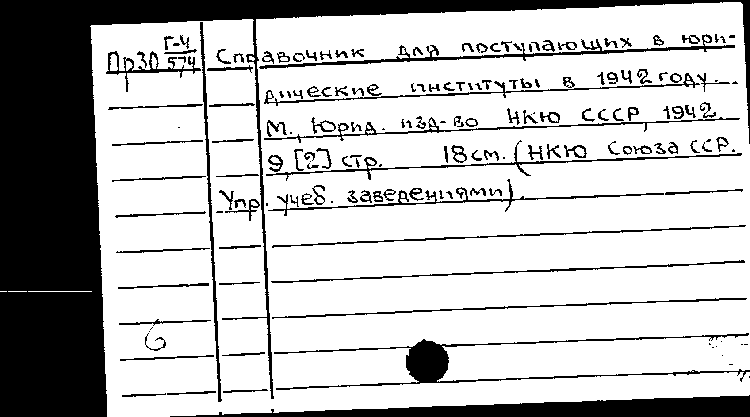 Пр30 Г-4/574 Справочник для поступающих в юри-
дические институты в 1942 году.
М., Юрид. изд-во НКЮ СССР, 1942.
9, [2] стр. 18 см. (НКЮ Союза ССР.
Упр. учеб. заведениями).
6